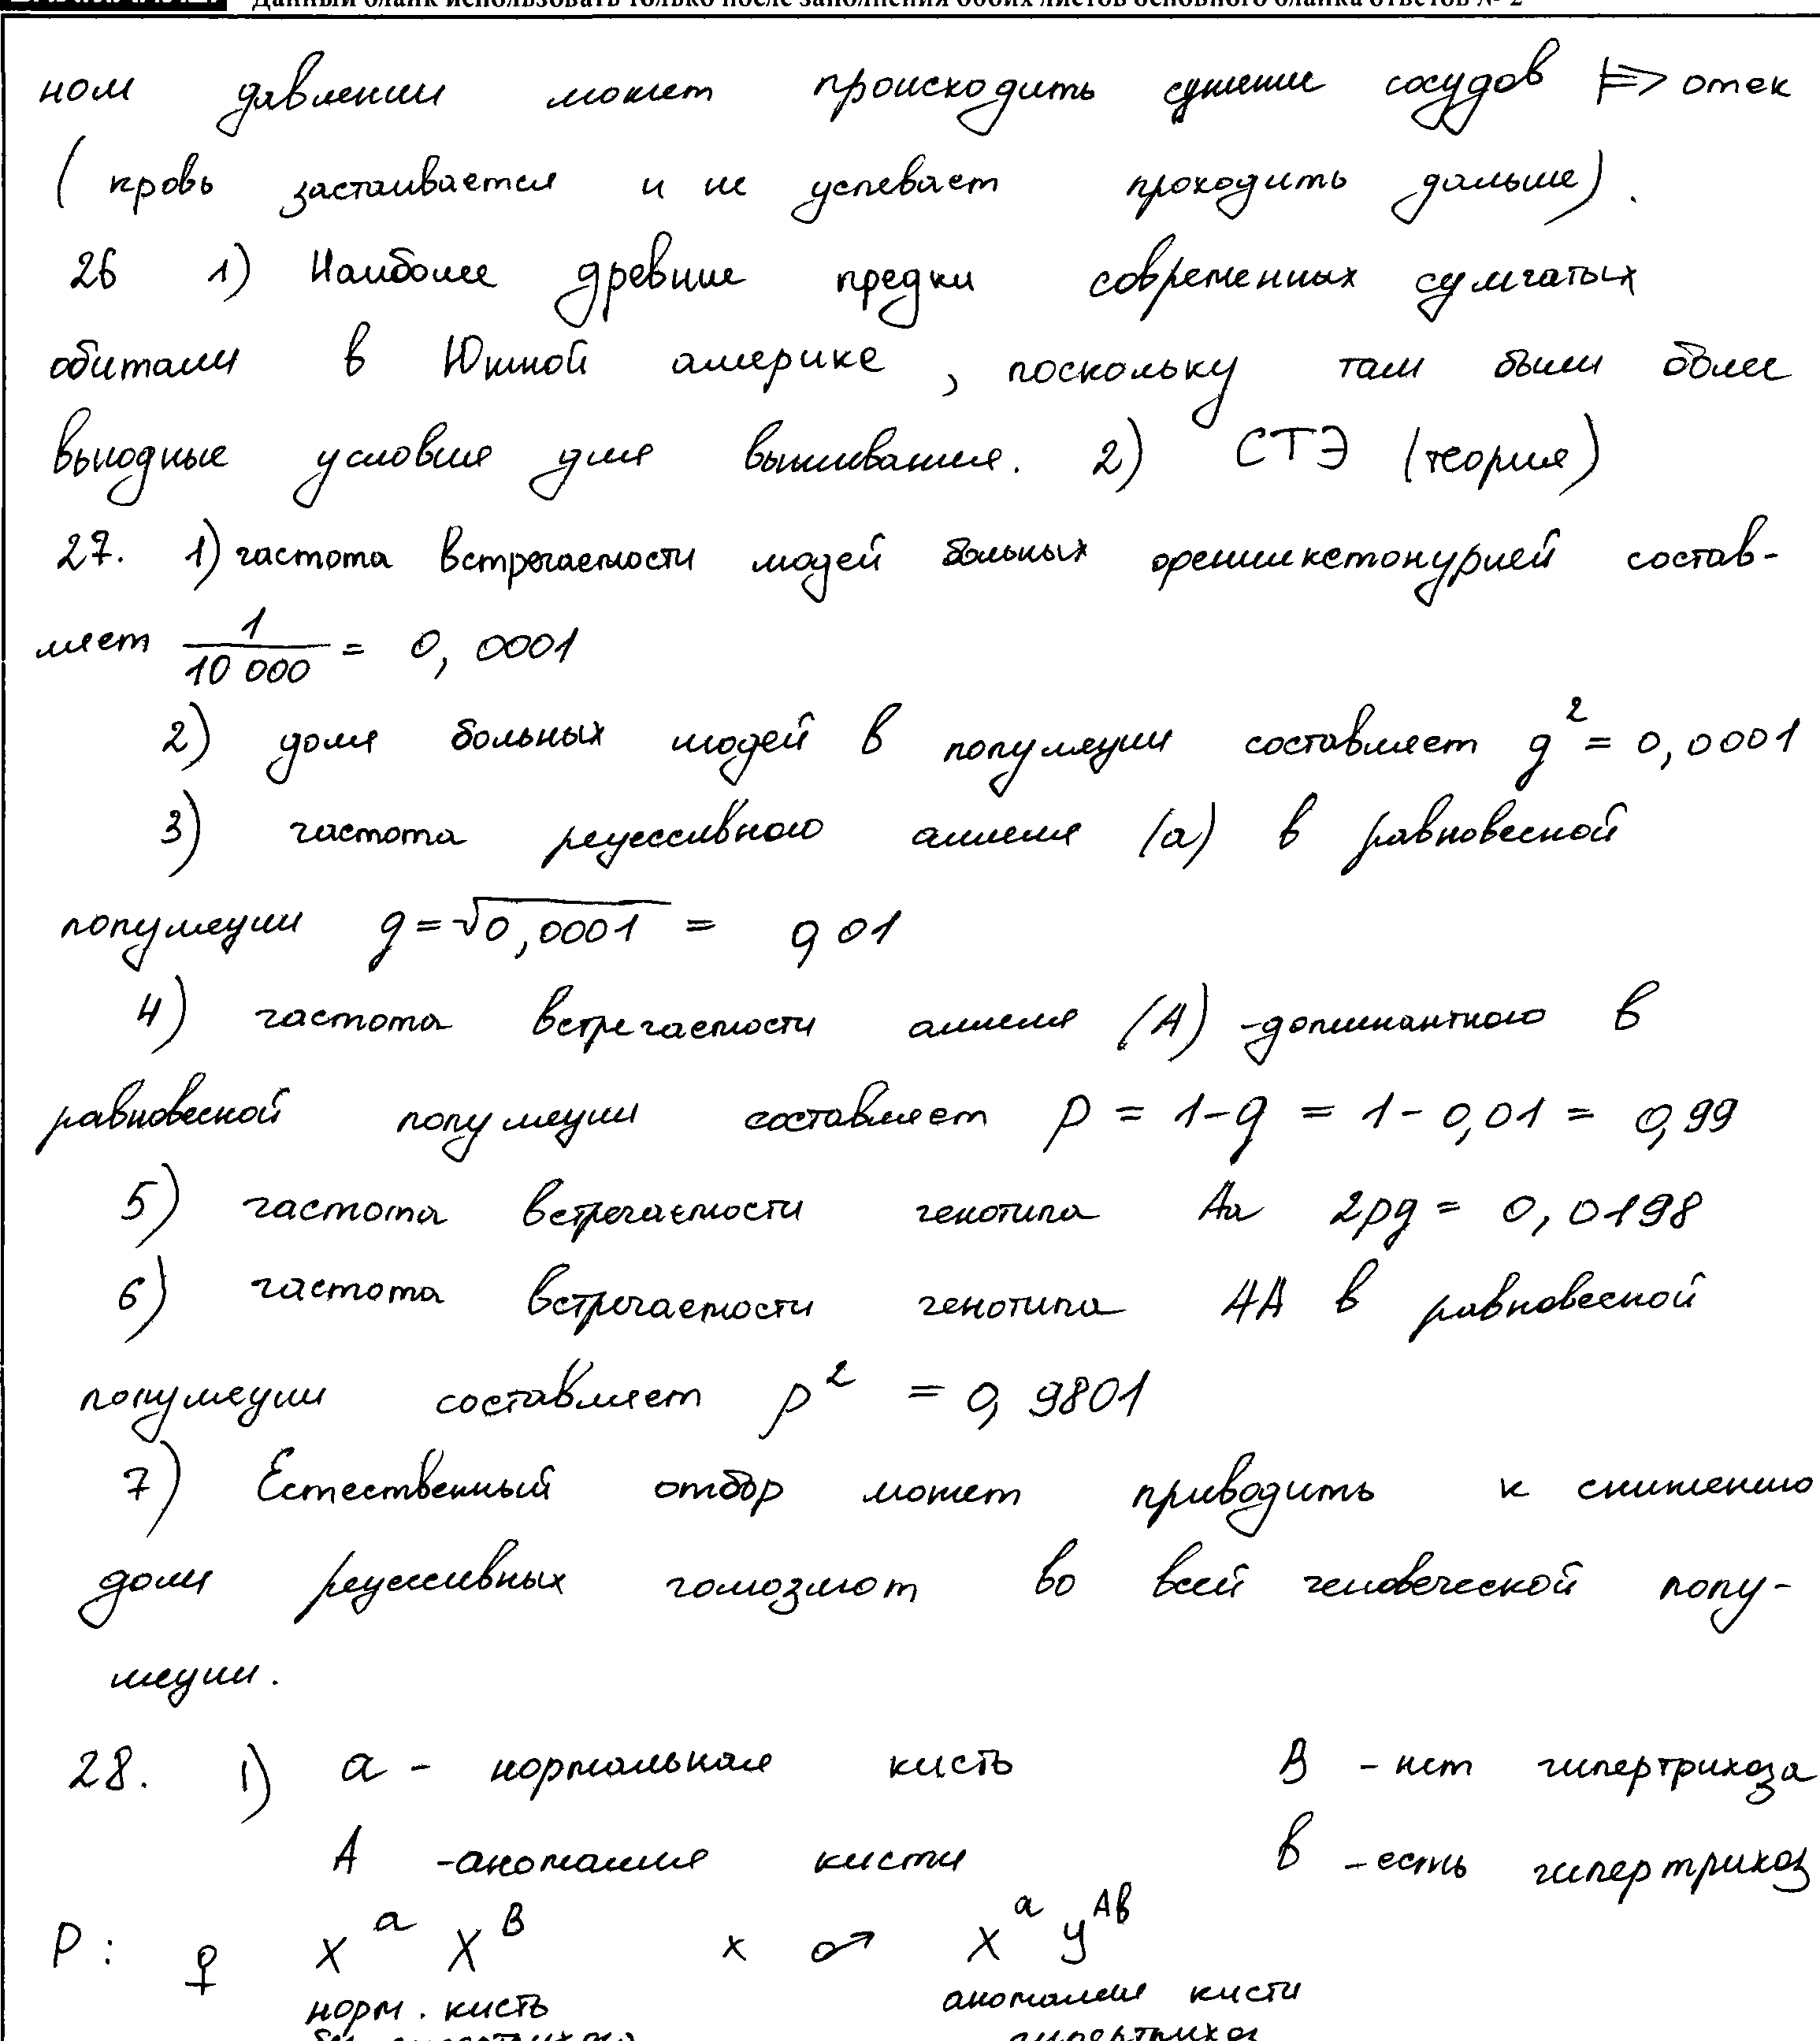 Данный бланк использовать только после заполнения обоих листов основного бланка ответов № 2
ном давлении может происходить сужение сосудов => отек
( кровь застаивается и не успевает проходить дальше).
26 1) Наиболее древние предки современных сумчатых
обитали в Южной америке, поскольку там были более
выгодные условия для выживания. 2) СТЭ (теория)
27. 1) частота встречаемости людей больных фенилкетонурией состав-
ляет 1/10 000 = 0,0001
2) доля больных людей в популяции составляет q² = 0,0001
3) частота рецессивного аллеля (а) в равновесной
популяции q = √0,0001 = 0,01
4) частота встречаемости аллеля (А) -доминантного в
равновесной популяции составляет p = 1-q = 1-0,01 = 0,99
5) частота встречаемости генотипа Аа 2pq = 0,0198
6) частота встречаемости генотипа АА в равновесной
популяции составляет p² = 0,9801
7) Естественный отбор может приводить к снижению
доли рецессивных гомозигот во всей человеческой попу-
ляции.
28. 1) а - нормальная кисть В - нет гипертрихоза
А -аномалия кисти в -есть гипертрихоз
Р: ♀ X^a X^B x ♂ X^a У^Ав
норм. кисть аномалия кисти
гипертрихоз